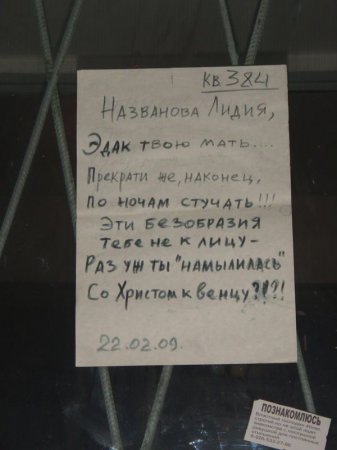 кв 384
Названова Лидия,
Эдак твою мать....
Прекрати же, наконец,
По ночам стучать!!!
Эти безобразия
тебе не к лицу-
Раз уж ты "намылилась"
Со Христом к венцу?!?!
22.02.09.
ПОЗНАКОМЛЮСЬ